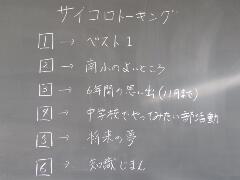 サイコロトーキング
1 → ベスト1
2 → 南小のよいところ
3 → 6年間の思い出(11月まで)
4 → 中学校でやってみたい部活動
5 → 将来の夢
6 → 知識じまん